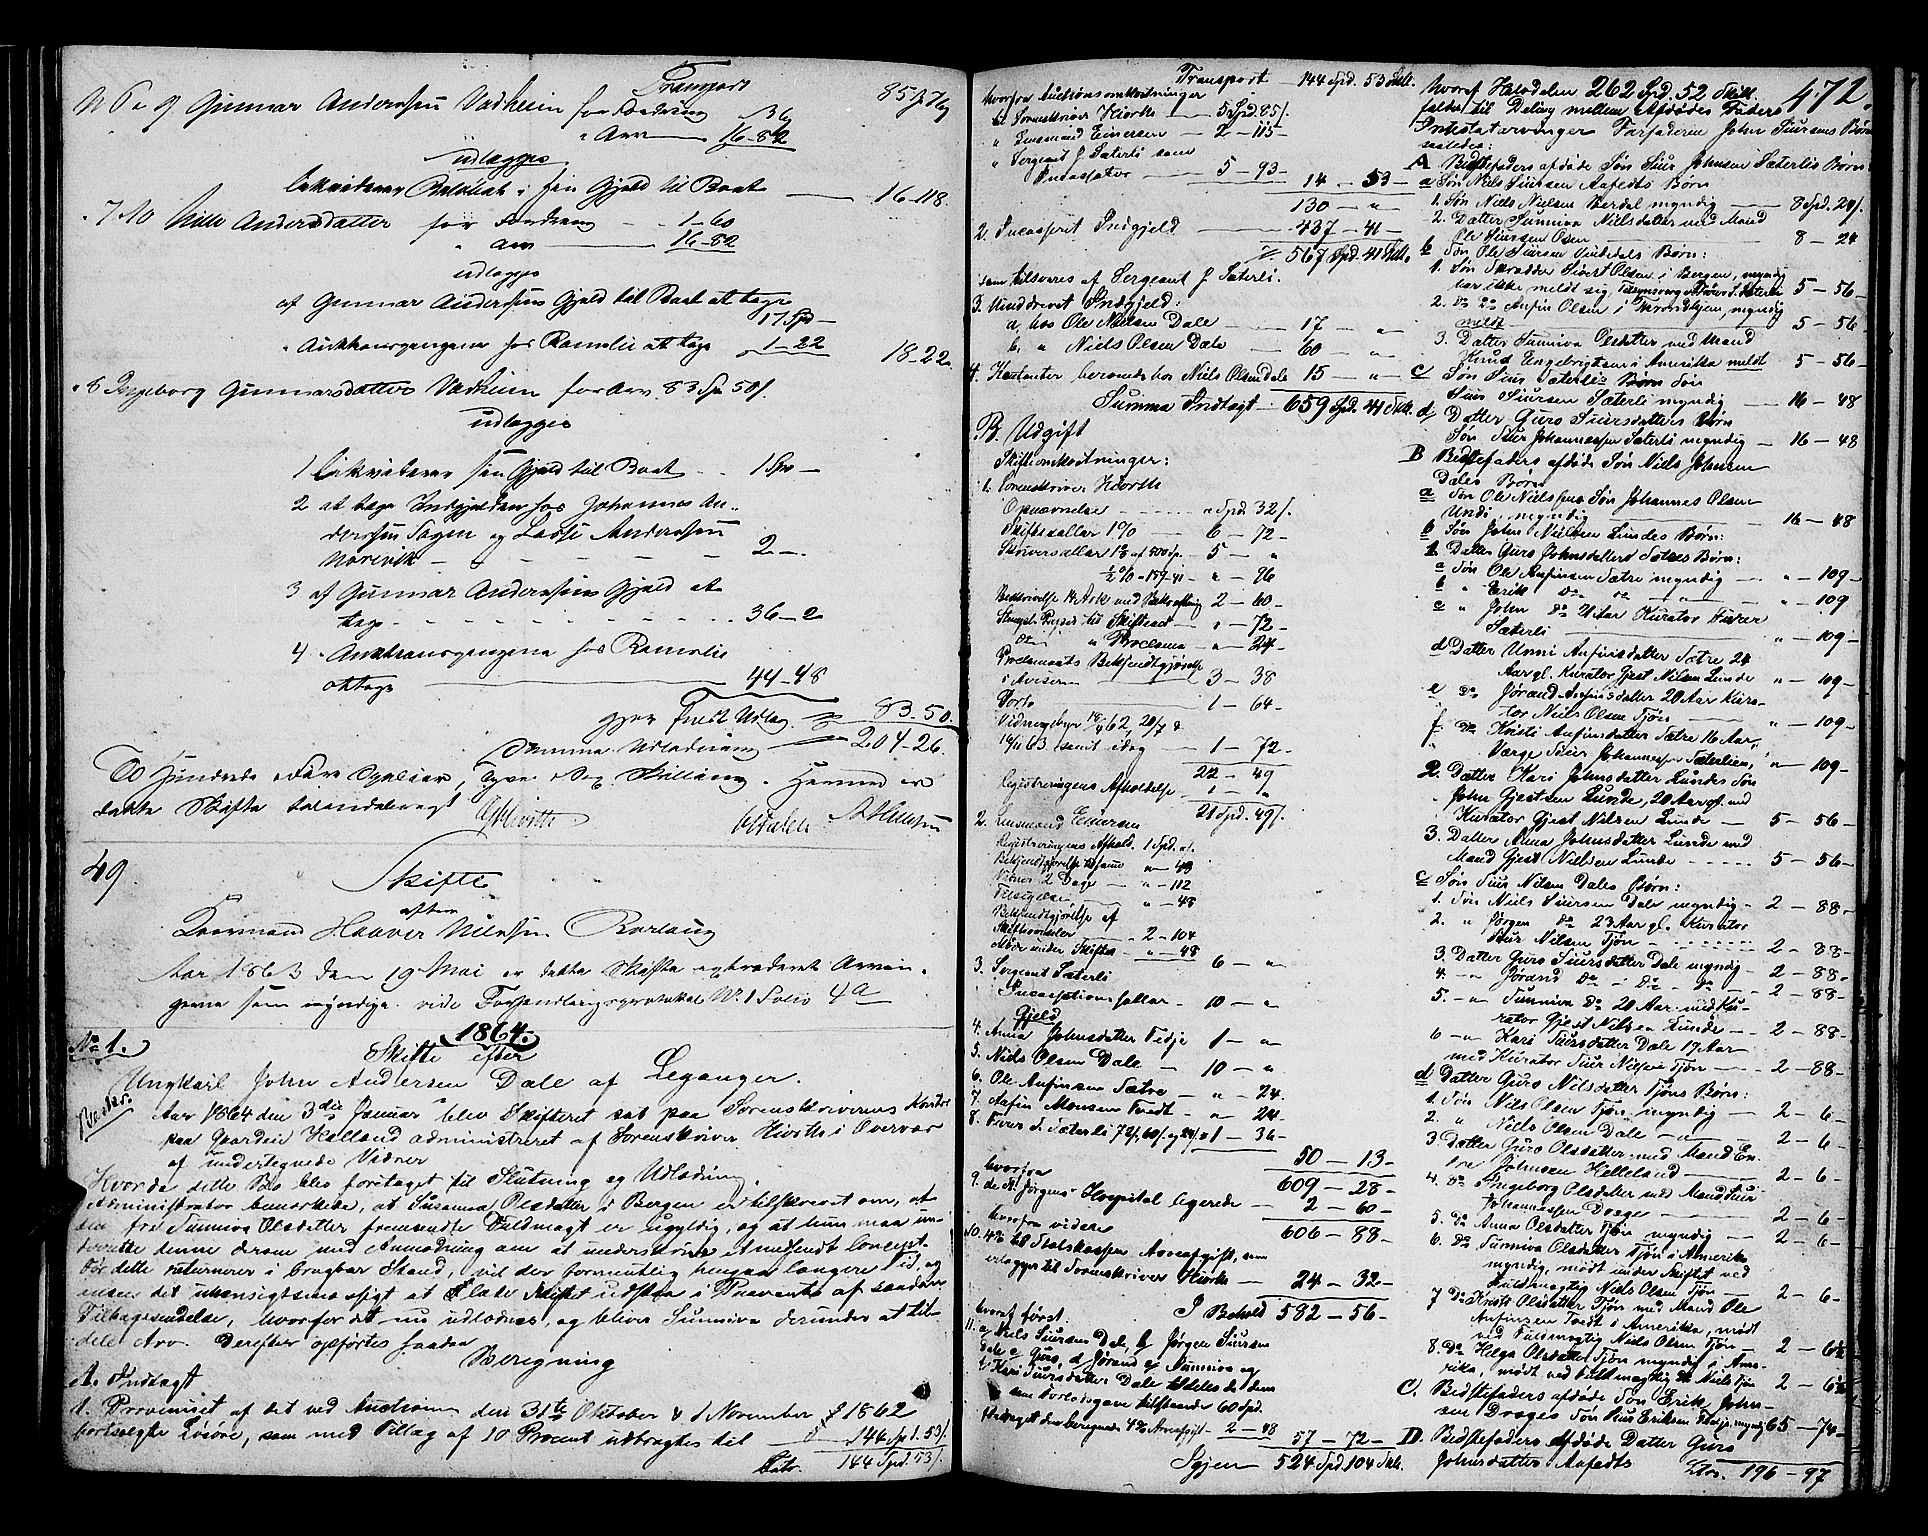 Transport
No 6 og Gunnar Andersen Vadheim for Fordring 36
85-76
" Arv 16-82
udlægges
Likviderer Beløbet i sin Gjeld til Boet 16-118
7 No Nille Andersdatter for Fordring 1-60
" Arv 16-82
udlægges
af Gunnar Andersens Gjeld til Boet at tage
17 Spd -
" Auktionspengene hos Ramslie at tage 1-22 18-22
8 Ingeborg Gunnarsdatter Vadheim for Arv 83 Spd 50 s.
udlægges
1 Likviderer sin Gjeld til Boet 1 Spd -
2 at tage Indgjelden hos Johannes An-
dersen Sagen og Lasse Andersen
Norevik 2 -
3 af Gunnar Andersens Gjeld at
tage 36-2
4 Auktionspengene hos Ramslie
at tage 44-48
gjør Fuldt Udlæg 83-50
Summa Udlodning 204-26
To Hundrede og Fire Species, Tyve og Sex Skilling. Hermed er
dette Skifte tilendebragt
49
Skifte
efter
Kaarmand Haaver Nilssen Rørlaug
Aar 1863 den 19 Mai er dette Skifte extraderet Arvin-
gerne som myndige. vide Forhandlingsprotokol No 1 Folio 4a
1864.
No 1. Skifte efter
Ungkarl John Andersen Dale af Leganger.
Aar 1864 den 3die Januar blev Skifteret sat paa Sorenskriverens Kontor
paa Gaarden Helland administreret af Sorenskriver Hiorth i Overvær
af undertegnede Vidner
Hvorda dette Bo blev foretaget til Slutning og Udlodning.
Administrator bemærkede, at Susanna Olsdatter i Bergen er tilskrevet om, at
den fra Sunniva Olsdatter fremsendte Fuldmagt er ugyldig, og at hun maa un-
derrette denne derom med Anmodning om at underskrive et medsendt Concept.
Før dette returnerer i brugbar Stand, vil der formentlig hengaa længere Tid, og
Tilbagesendelse, hvorfor det nu udloddes, og bliver Sunniva derunder at til-
dele Arv. Derefter opførtes saadan
Beregning
A. Indtægt
1. Provenuet af det ved Auction den 31te Oktober & 1 November 1862
bortsolgte Løsøre, som med Tillæg af 10 Procent udbragtes til 144 Spd. 53 s.
Latr. 144 Spd. 53 s.
Transport 144 Spd. 53 Skill.
hvorfra Auctionsomkostninger
til Sorenskriver Hiorth 5 Spd. 85 s.
" Lensmand Einersen 2 - 115 -
" Sergeant J. Sæterli som
Incassator 5 - 93 - 14 - 53 -
130 - " -
2. Incasseret Indgjeld 437 - 41 -
567 Spd. 41 Skill.
som tilsvares af Sergeant J. Sæterli.
3. Uinddrevet Indgjeld:
a, hos Ole Nielsen Dale 17 - "
b, " Niels Olsen Dale 60 - "
4. Contanter beroende hos Niels Olsen Dale 15 - "
Summa Indtægt 659 Spd. 41 Skill.
B. Udgift
Skifteomkostninger:
1. Sorenskriver Hiorth
Opnævnelse " Spd. 32 s.
Skiftesallar 1% 6 - 72 -
Skriversallar 1% af 500 Sp. 5 - "
½% - 159-41 " - 96
Beskrivelse 14 Ark med Bekræftning 2 - 60 -
Stemplet Papir til Skifteact " - 72 -
Do " Proclama " - 24 -
Proclamats Bekjendtgjørelse
i Aviserne 3 - 38
Porto 1 - 64 -
19/11 63 samt idag 1 - 72 -
22 - 49
Registreringens Afholdelse 1 - "
21 Spd. 49 s.
2. Lensmand Einersen
Registreringens Afhold. 1 Spd. "
Bekjendtgjørelse tilsamme " - 48
Vidner 2 Dage " - 112
Tilsigelse " - 48
Bekjendtgjørelse af
Skiftesamler 2 - 104
Møde under Skifte " - 48 6 - "
3. Sergeant Sæterli
Incassationssallar 10 - "
Gjeld
4. Anna Johnsdatter Tidje 1 - "
5. Niels Olsen Dale 10 - "
6. Ole Anfinsen Sætre " - 24
7. Anfin Monsen Tvedt " - 24
8. Siver J. Sæterli 72 s., 60 s. og 24 s. 1 - 36 -
50 - 13 -
hvorfra 609 - 28 -
9. de St. Jørgens Hospital legerede 2 - 60 -
hvorfra videre 606 - 88 -
10. 4% til Statskassen Arveafgift, som
erlægges til Sorenskriver Hiorth 24 - 32 -
I Behold 582 - 56 -
hvoraf først.
11. a, Niels Siursen Dale, b, Jørgen Siursen
Dale c, Guro, d, Jørand e, Sunniva og
f, Kari Siursdatter Dale tildeles de dem
som Forlodsgave tilstaaede 60 Spd.
fradraget den beregnede 4% Arveafgift 2 - 48
57 - 72 -
Igjen 524 Spd. 104 Skill.
472.
hvoraf Halvdelen 262 Spd. 52 Skill.
falder til Deling mellem Afdødes Faders
Intestatarvinger Farfaderen John Siursens Børn
saaledes:
A Bedstefaders afdøde Søn Siur Johnsen Sæterlis Børn
a Søn Niels Siursen Aafedts Børn
1. Søn Niels Nielsen Berdal myndig 8 Spd. 24 s.
2. Datter Sunniva Nielsdatter med Mand
Ole Siursen Osen 8 - 24
b Søn Ole Siursen Vindedals Børn:
1. Søn Skrædder Sivert Olsen i Bergen, myndig
har ikke meldt sig, 5 - 56 -
2. Do Do Anfin Olsen i Throndhjem, myndig
meldt 5 - 56
3. Datter Sunniva Olsdatter med Mand
Knud Engebrigtsen i Amerika meldt 5 - 56 -
c Søn Siur Sæterlis Børn Søn
Siur Siursen Sæterli myndig 16 - 48
d, Datter Guro Siursdatters Børn
Søn Siur Johannessen Sæterli myndig 16 - 48
B Bedstefaders afdøde Søn Niels Johnsen
Dales Børn
a Søn Ole Nielsens Søn Johannes Olsen
Undi, myndig 16 - 48
b Søn John Nielsen Lundes Børn:
1. Datter Guro Johnsdatter Sætres Børn:
a Søn Ole Anfinsen Sætre myndig " - 109 -
b " Erik Do Do " - 109
c " John Do 21 Aar Kurator Siver
Sæterli " - 109 -
d Datter Unni Anfinsdatter Sætre 24
Aar gl. Kurator Gjest Nilsen Lunde " - 109 -
e Do Jørand Anfinsdatter 20 Aar Kura-
tor Niels Olsen Tjøn " - 109 -
f Do Kristi Anfinsdatter Sætre 16 Aar,
Værge Siur Johannessen Sæterlien, " - 109 -
2. Datter Kari Johnsdatter Lundes Søn
John Gjestsen Lunde, 20 Aar gl. med
Kurator Gjest Nielsen Lunde 5 - 56 -
3. Datter Anna Johnsdatter Lunde med
Mand Gjest Nielsen Lunde 5 - 56 -
c Søn Siur Nilsen Dales Børn:
1. Søn Niels Siursen Dale myndig 2 - 88 -
2. " Jørgen Do 23 Aar gl. Kurator
Siur Nilsen Tjøn 2 - 88 -
3. Datter Guro Siursdatter Dale myndig 2 - 88 -
4. " Jørand Do Do Do 2 - 88 -
5. " Sunniva Do 20 Aar med Ku-
rator Gjest Nilsen Lunde 2 - 88 -
6 " Kari Siursdatter Dale 17 Aar
med Kurator Siur Nilsen Tjøn 2 - 88 -
d Datter Guro Nilsdatter Tjøns Børn:
1. Søn Niels Olsen Tjøn myndig 2 - 6 -
2. " Niels Olsen Dale " 2 - 6 -
3 Datter Guro Olsdatter med Mand En-
Johnsen Helleland 2 - 6 -
4. Do Ingeborg Olsdatter med Mand Siur
Johannessen Drage 2 - 6 -
5. Do Anna Olsdatter Tjøn myndig 2 - 6 -
6. Do Sunniva Olsdatter Tjøn i Amerika
myndig, mødt under Skiftet ved
Fuldmægtig Niels Olsen Tjøn 2 - 6 -
7 Do Kristi Olsdatter Tjøn med Mand Ole
Anfinsen Tvedt i Amerika, mødt
ved Fuldmægtig Niels Olsen Tjøn 2 - 6½
8. Do Helga Olsdatter Tjøn myndig i Ame-
rika, mødt ved Fuldmægtig Niels Tjøn 2 - 6½
C. Bedstefaders afdøde Søn Erik John-
sen Drages Søn Siur Eriksen myndig 65 - 74 -
D. Bedstefaders Afdøde Datter Guro
Johnsdatter Aafedts Ltr. 196 - 97